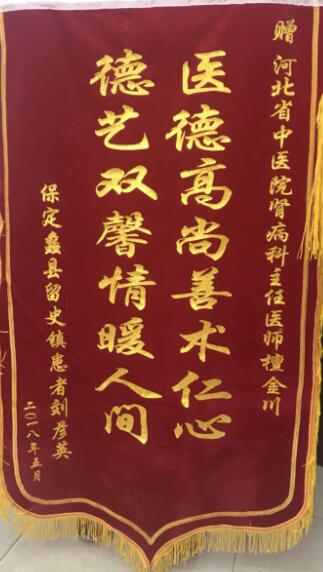 赠 河北省中医院肾病科主任医师檀金川
医德高尚善术仁心
德艺双馨情暖人间
保定蠡县留史镇患者刘彦英
二〇一八年五月